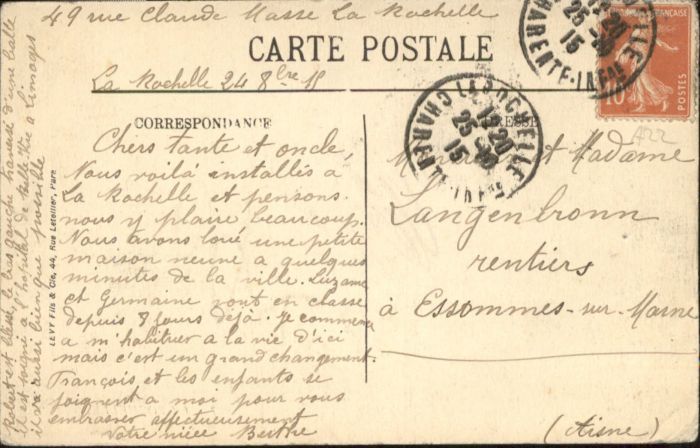 49 rue Claude Masse La Rochelle
CARTE POSTALE
La Rochelle 24 8bre 15
CORRESPONDANCE
Chers tante et oncle,
Nous voilà installés à
La Rochelle et pensons
nous y plaire beaucoup.
Nous avons loué une petite
maison neuve à quelques
minutes de la ville. Suzanne
et Germaine vont en classe
depuis 8 jours déjà. Je commence
a m'habituer a la vie d'ici
mais c'est un grand changement.
François et les enfants se
joignent a moi pour vous
embrasser affectueusement
Votre nièce Berthe
Robert est blessé le bras gauche traversé d'une balle
il est soigné à l'hôpital de à Limoges
il va aussi bien que possible
LEVY Fils & Cie, 44, Rue Letellier, Paris
LA ROCHELLE
12-20
25-10
15
CHARENTE-INFRE
ROCHELLE
12-20
25-10
15
CHARENTE-INFRE
RÉPUBLIQUE FRANÇAISE
10
POSTES
A22
ADRESSE
Monsieur et Madame
Langenbronn
rentiers
à Essommes-sur-Marne
(Aisne)